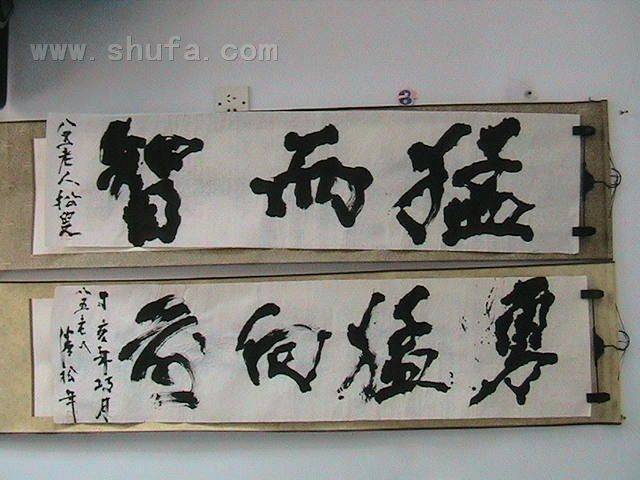 www.shufa.com
猛而智
八五老人松
勇猛向前
丁亥年巧月
八五老人